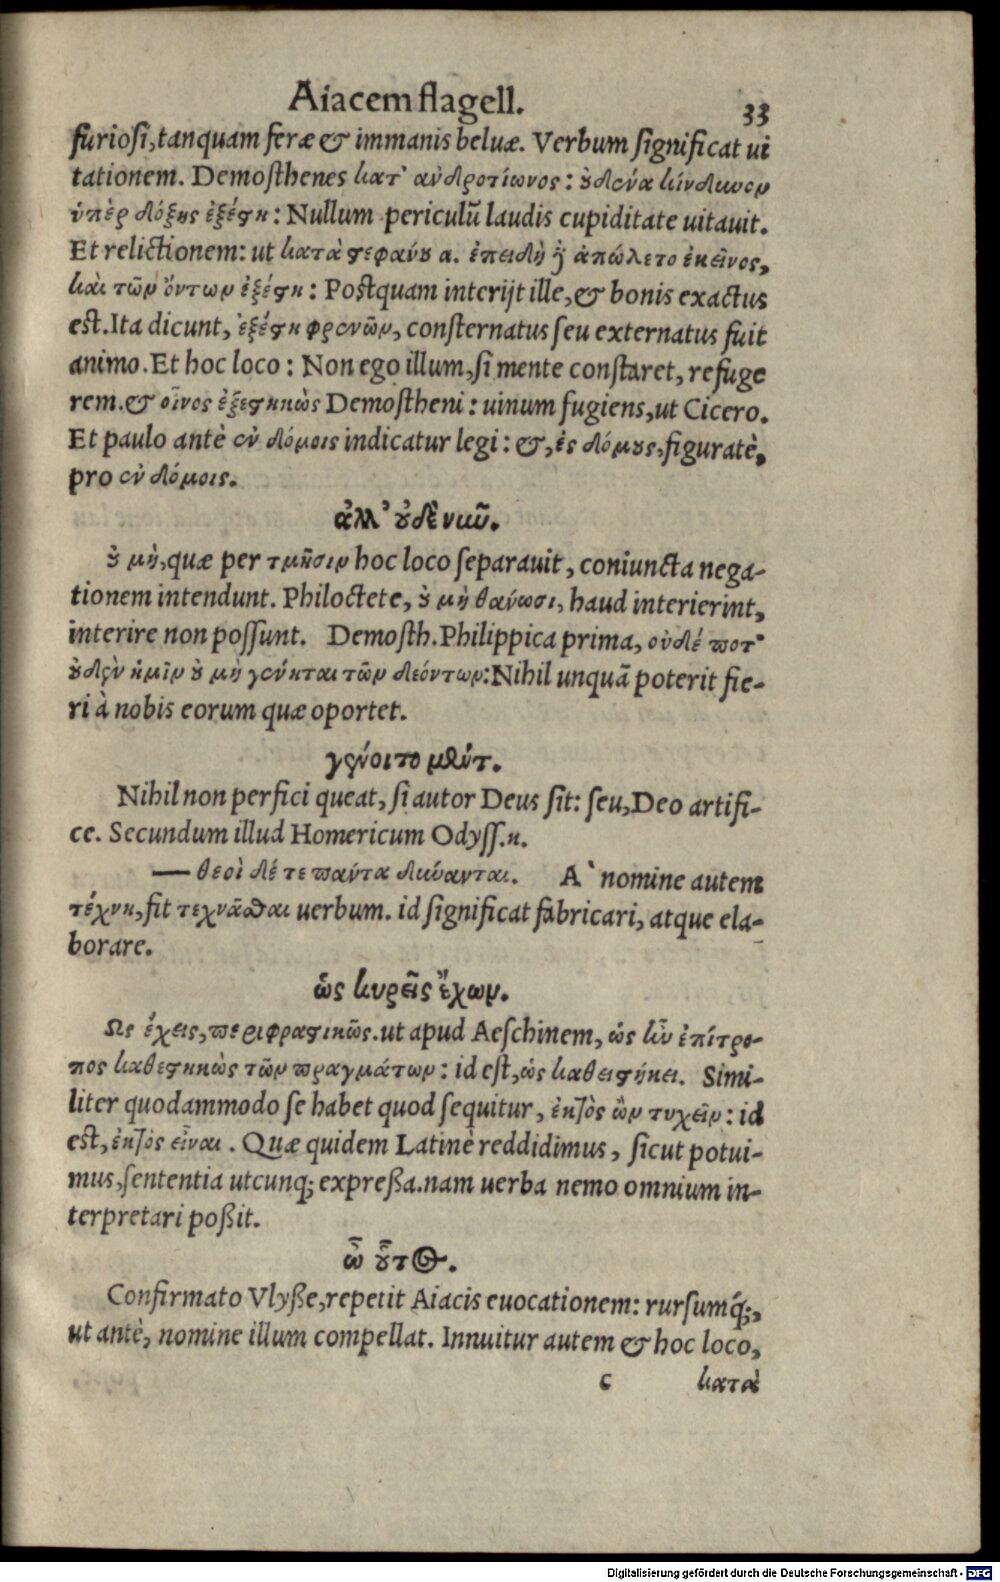 Aiacem flagell. 33
furiosi, tanquam feræ & immanis beluæ. Verbum significat ui
tationem. Demosthenes κατ' ανδροτίωνος: οὐδένα κίνδυνον
ὑπὲρ δόξης ἐξέστη: Nullum periculũ laudis cupiditate uitauit.
Et relictionem: ut κατὰ στεφάνου α. ἐπειδὴ δ' ἀπώλετο ἐκεῖνος,
καὶ τῶν ὄντων ἐξέστη: Postquam interijt ille, & bonis exactus
est. Ita dicunt, ἐξέστη φρενῶν, consternatus seu externatus fuit
animo. Et hoc loco: Non ego illum, si mente constaret, refuge
rem. & οἶνος ἐξεστηκὼς Demostheni: uinum fugiens, ut Cicero.
Et paulo antè ἐν δόμοις indicatur legi: &, ἐς δόμους, figuratè,
pro ἐν δόμοις.
ἀλλ' οὐδὲ νιῦ.
οὐ μὴ, quæ per τμῆσιν hoc loco separauit, coniuncta nega-
tionem intendunt. Philoctete, οὐ μὴ θανωσι, haud interierint,
interire non possunt. Demosth. Philippica prima, οὐδέ ποτ'
οὐδὲν ἡμῖν οὐ μὴ γένηται τῶν δεόντων: Nihil unquã poterit fie-
ri à nobis eorum quæ oportet.
γένοιτο μεντ.
Nihil non perfici queat, si autor Deus sit: seu, Deo artifi-
ce. Secundum illud Homericum Odyss. κ.
— θεοὶ δέ τε πάντα δύνανται. A` nomine autem
τέχνη, fit τεχνᾶσθαι uerbum. id significat fabricari, atque ela-
borare.
ὡς κυρεῖς ἔχων.
Ως ἔχεις, περιφραστικῶς. ut apud Aeschinem, ὡς ἦν ἐπίτρο-
πος καθεστηκὼς τῶν πραγμάτων: id est, ὡς καθειστήκει. Simi-
liter quodammodo se habet quod sequitur, ἐκτὸς ὢν τυχεῖν: id
est, ἐκτὸς εἶναι. Quæ quidem Latinè reddidimus, sicut potui-
mus, sententia utcunq; expreßa. nam uerba nemo omnium in-
terpretari poßit.
ὦ οὗτος.
Confirmato Vlyße, repetit Aiacis euocationem: rursumq́;,
ut antè, nomine illum compellat. Innuitur autem & hoc loco,
c κατὰ
Digitalisierung gefördert durch die Deutsche Forschungsgemeinschaft - DFG